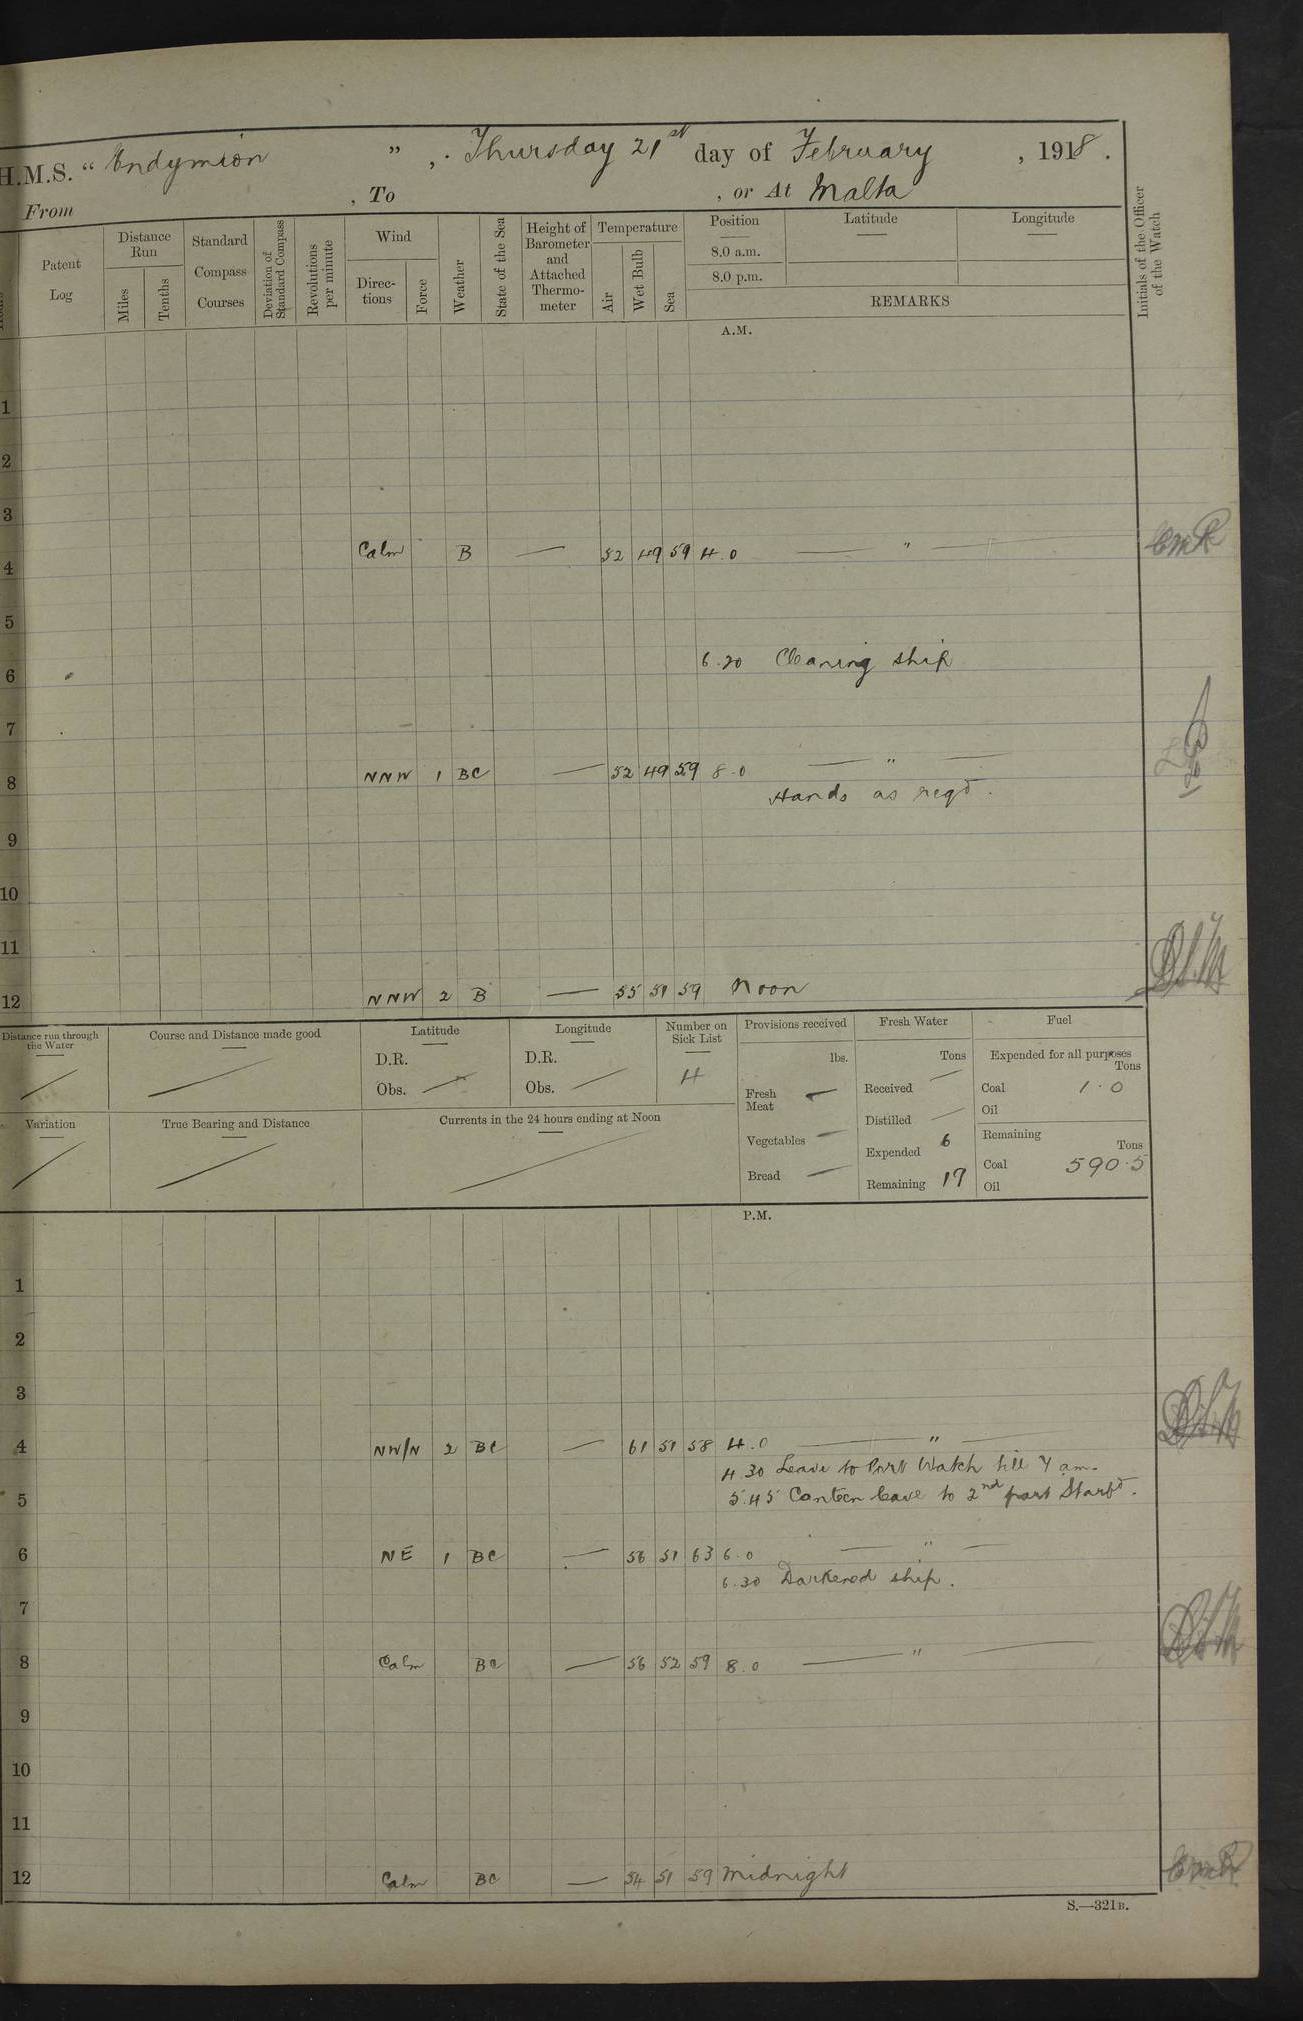 H.M.S. "Endymion", Thursday 21st day of February, 1918.
From , To , or At Malta
Patent Log
Distance Run
Miles
Tenths
Standard Compass Courses
Deviation of Standard Compass
Revolutions per minute
Wind
Directions
Force
Weather
State of the Sea
Height of Barometer and Attached Thermometer
Temperature
Air
Wet Bulb
Sea
Position
8.0 a.m.
8.0 p.m.
Latitude
Longitude
REMARKS
Initials of the Officer of the Watch
A.M.
1
2
3
4 Calm B — 52 49 59 4.0 — " —
5
6 6.20 Cleaning ship
7
8 NNW 1 BC — 52 49 59 8.0 — " —
Hands as reqd.
9
10
11
12 NNW 2 B — 55 51 59 Noon
Distance run through the Water
Course and Distance made good
Latitude
D.R.
Obs.
Longitude
D.R.
Obs.
Number on Sick List
4
Provisions received
lbs.
Fresh Meat —
Vegetables —
Bread —
Fresh Water
Tons
Received —
Distilled —
Expended 6
Remaining 17
Fuel
Expended for all purposes
Tons
Coal 1.0
Oil
Remaining
Tons
Coal 590.5
Oil
Variation
True Bearing and Distance
Currents in the 24 hours ending at Noon
P.M.
1
2
3
4 NW/N 2 BC — 61 51 58 4.0 — " —
4.30 Leave to Port Watch till 7 am.
5 5.45 Canteen leave to 2nd part Starbd.
6 NE 1 BC — 56 51 63 6.0 — " —
6.30 Darkened ship.
7
8 Calm BC — 56 52 59 8.0 — " —
9
10
11
12 Calm BC — 54 51 59 Midnight
S.—321B.